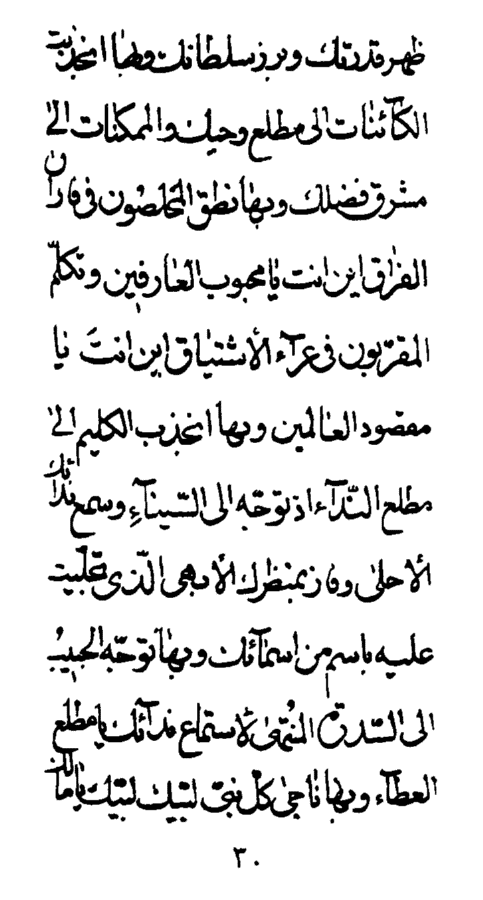 ظهر قدرتك و برز سلطانك و بها انجذبت
الكآئنات الى مطلع وحيك و الممكنات الى
مشرق فضلك و بها نطق المخلصون فى فاران
الفراق اين انت يا محبوب العارفين و تكلّم
المقرّبون فى عرآء الأشتياق اين انتَ يا
مقصود العالمين و بها انجذب الكليم الى
مطلع النّدآء اذ توجّه الى السّينآءِ و سمع ندائك
الأحلى و فاز بمنظرك الأبهى الّذى تجلّيت
عليه باسم من اسمآئك و بها توجّه الحبيبُ
الى السّدرة المُنتهى لأستماع ندآئك يا مطلع
العطآء و بها ناجى كلّ نبىّ لبّيك لبّيك يا مالك
٣٠